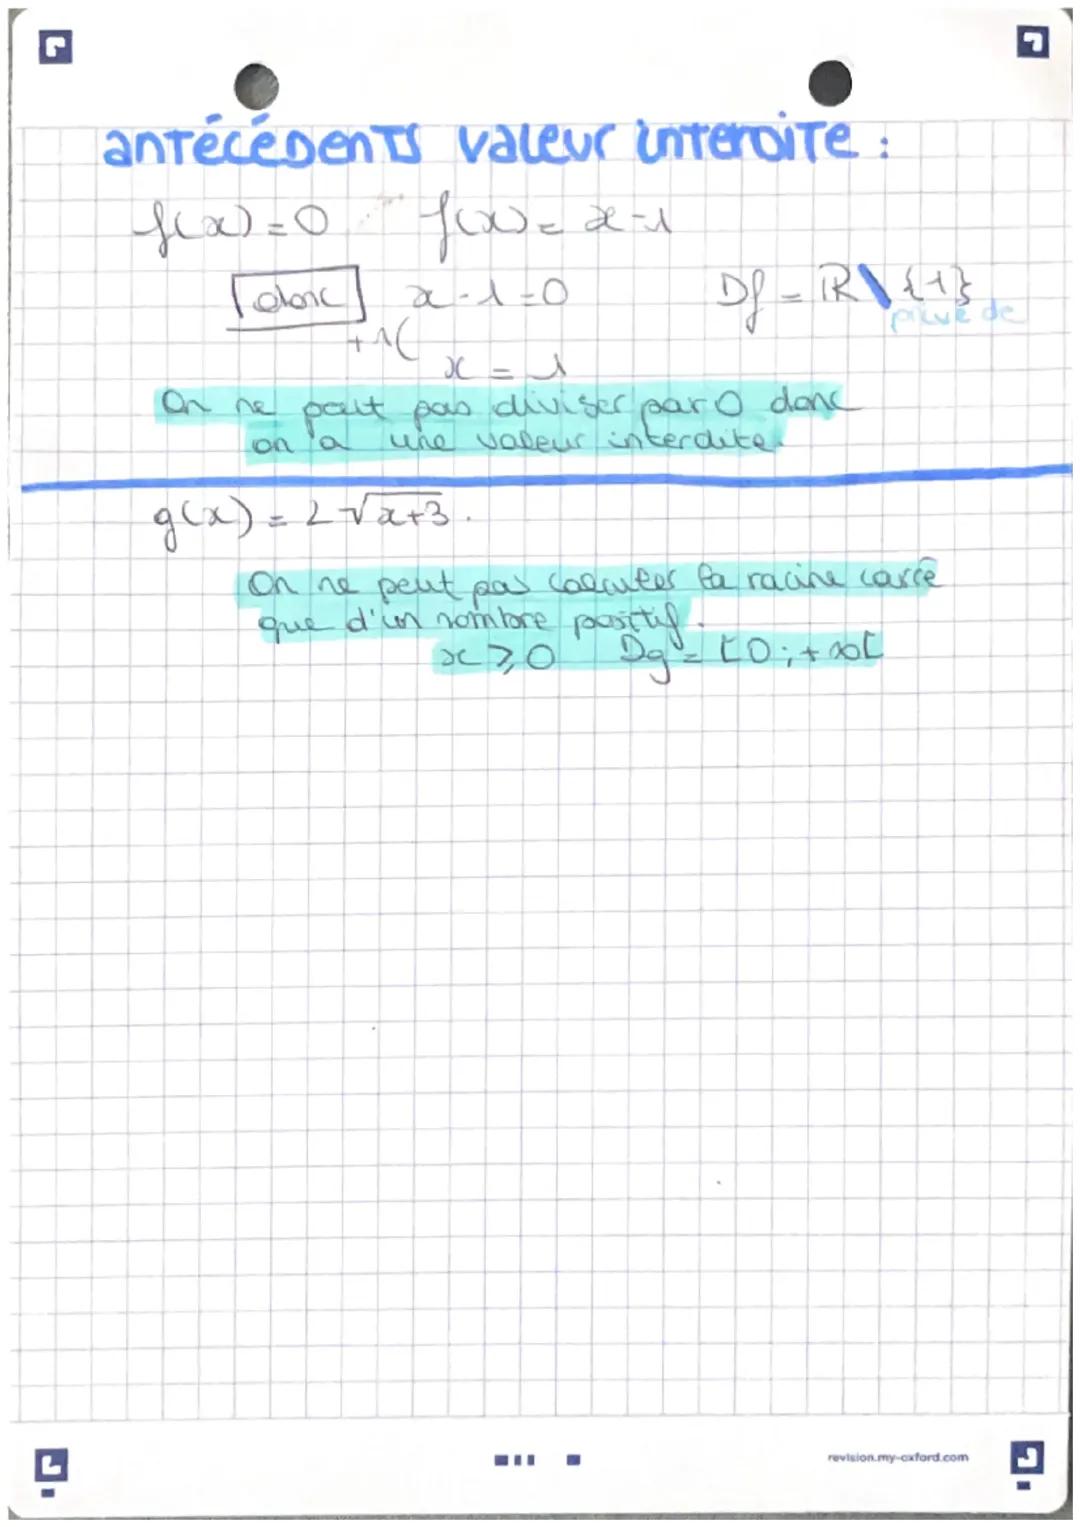 antécédents valeur interdite :
f(x)=0 f(x)= x-1
donc x-1=0 Df = ℝ\{1}
privé de
+1( x = 1
On ne peut pas diviser par 0 donc
on a une valeur interdite.
g(x) = 2√x+3.
On ne peut pas calculer la racine carré
que d'un nombre positif.
x ⩾ 0 Dg = [0;+∞[
revision.my-oxford.com